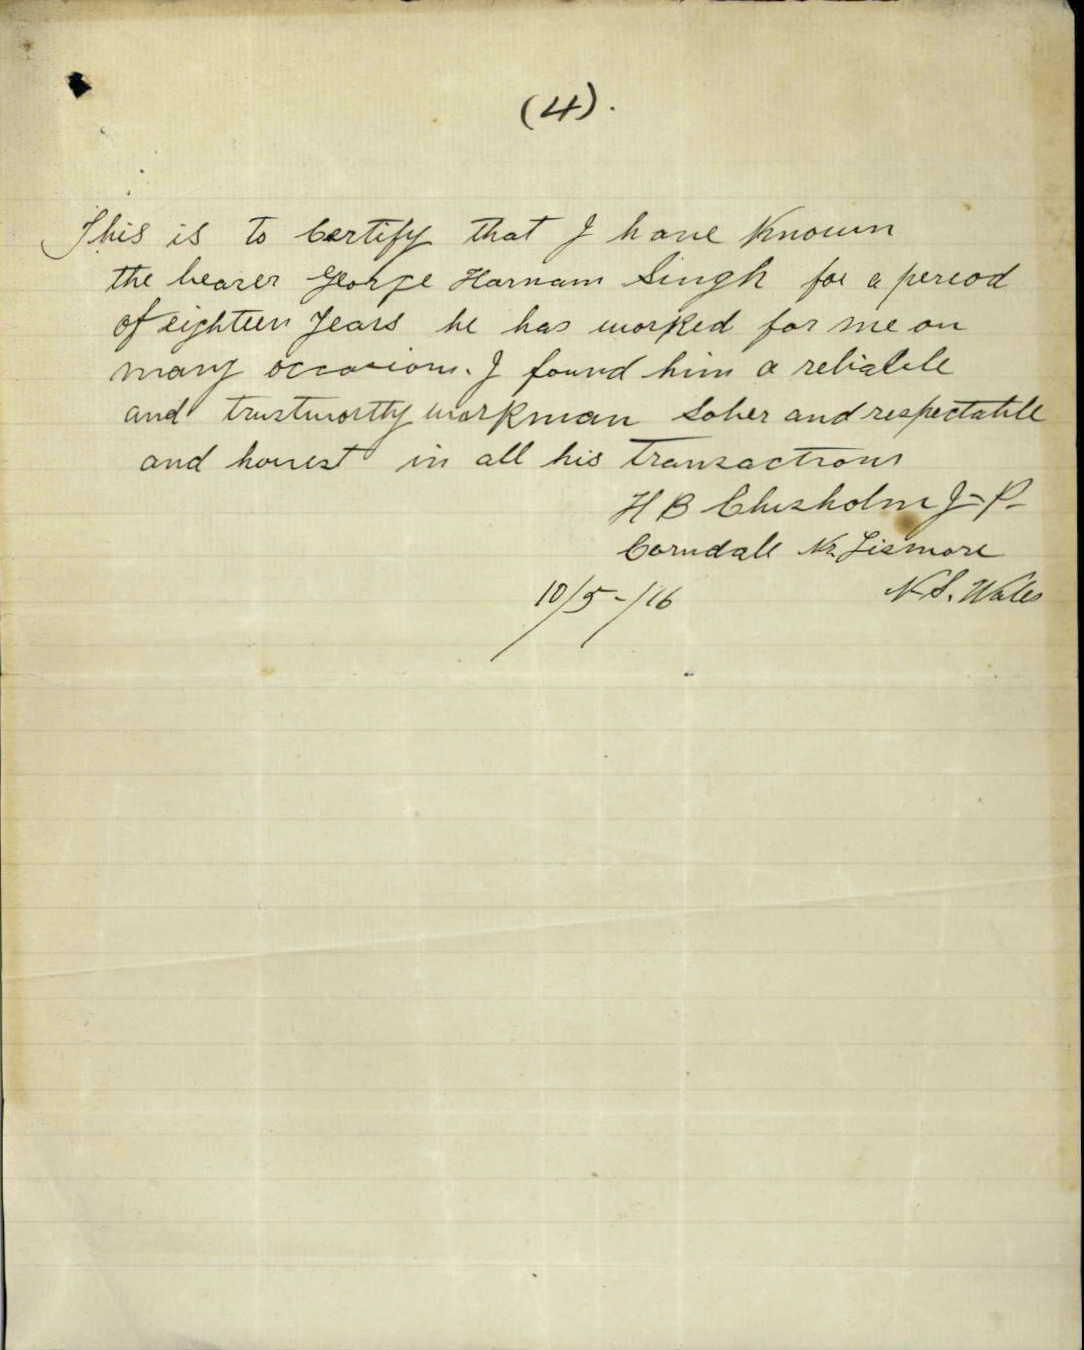 (4).
This is to Certify that I have Known
the bearer George Harnam Singh for a period
of eighteen Years he has worked for me on
many occasions. I found him a reliable
and trustworthy workman Sober and respectable
and honest in all his transactions
H B Chisholm J-P-
Corndale Nr. Lismore
N.S. Wales
10/5-/16